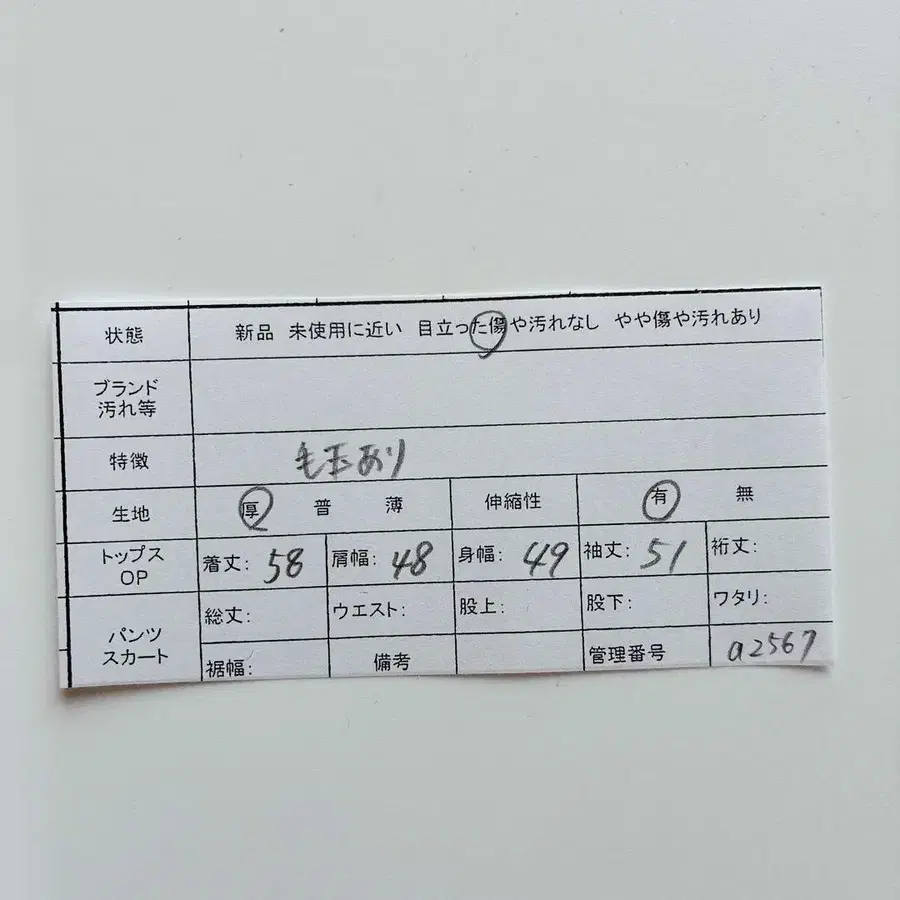 状態 新品 未使用に近い 目立った傷や汚れなし やや傷や汚れあり
ブランド
汚れ等
特徴 毛玉あり
生地 厚 普 薄 伸縮性 有 無
トップス
OP
着丈: 58 肩幅: 48 身幅: 49 袖丈: 51 裄丈:
パンツ
スカート
総丈: ウエスト: 股上: 股下: ワタリ:
裾幅: 備考 管理番号 a2567